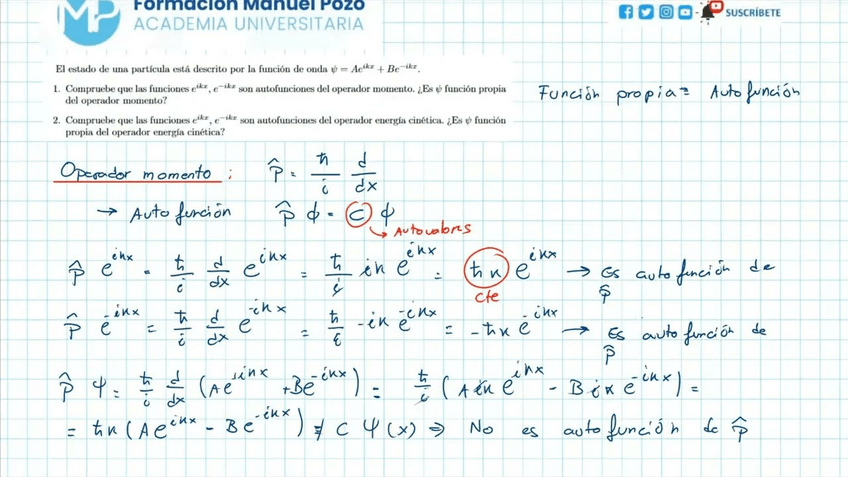 Formación Manuel Pozo
ACADEMIA UNIVERSITARIA
MP
SUSCRÍBETE
El estado de una partícula está descrito por la función de onda ψ = Ae^{ikx} + Be^{-ikx}.
1. Compruebe que las funciones e^{ikx}, e^{-ikx} son autofunciones del operador momento. ¿Es ψ función propia
del operador momento?
2. Compruebe que las funciones e^{ikx}, e^{-ikx} son autofunciones del operador energía cinética. ¿Es ψ función
propia del operador energía cinética?
Función propia = Autofunción
Operador momento: p̂ = ħ/i d/dx
→ Autofunción p̂ φ = C φ
→ Autovalores
p̂ e^{ikx} = ħ/i d/dx e^{ikx} = ħ/i ik e^{ikx} = ħk e^{ikx} → Es autofunción de
p̂
cte
p̂ e^{-ikx} = ħ/i d/dx e^{-ikx} = ħ/i -ik e^{-ikx} = -ħk e^{-ikx} → Es autofunción de
p̂
p̂ ψ = ħ/i d/dx (Ae^{ikx} + Be^{-ikx}) = ħ/i (Aik e^{ikx} - Bik e^{-ikx}) =
= ħk (Ae^{ikx} - Be^{-ikx}) ≠ C ψ(x) ⇒ No es autofunción de p̂